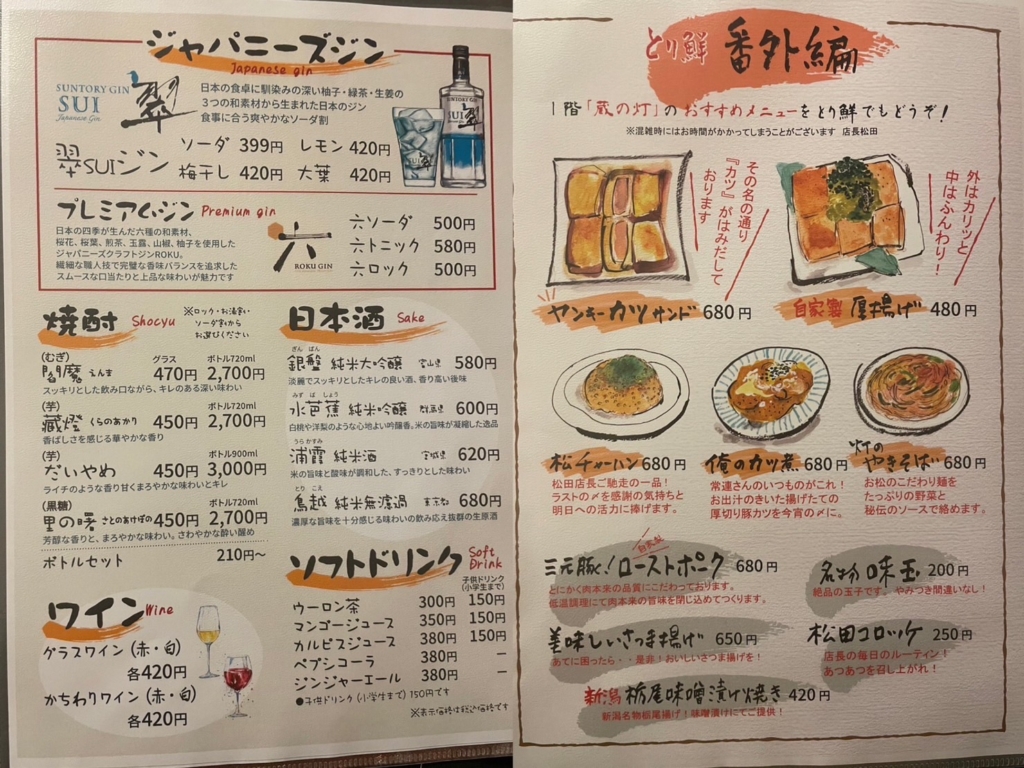 ジャパニーズジン
Japanese gin
SUNTORY GIN
SUI
Japanese Gin
翠
日本の食卓に馴染みの深い柚子・緑茶・生姜の
3つの和素材から生まれた日本のジン
食事に合う爽やかなソーダ割
SUNTORY GIN
翠
SUI
翠SUIジン
ソーダ 399円 レモン 420円
梅干し 420円 大葉 420円
プレミアムジン Premium gin
日本の四季が生んだ六種の和素材、
桜花、桜葉、煎茶、玉露、山椒、柚子を使用した
ジャパニーズクラフトジンROKU。
繊細な職人技で完璧な香味バランスを追求した
スムースな口当たりと上品な味わいが魅力です
六
ROKU GIN
六ソーダ 500円
六トニック 580円
六ロック 500円
焼酎 Shocyu
※ロック・お湯割い
ソーダ割から
お選びください
(むぎ) グラス ボトル720ml
閻魔 えんま 470円 2,700円
スッキリとした飲み口ながら、キレのある深い味わい
(芋) ボトル720ml
蔵燈 くらのあかり 450円 2,700円
香ばしさを感じる華やかな香り
(芋) ボトル900ml
だいやめ 450円 3,000円
ライチのような香り甘くまろやかな味わいとキレ
(黒糖) ボトル720ml
里の曙 さとのあけぼの 450円 2,700円
芳醇な香りと、まろやかな味わい。さわやかな酔い醒め
ボトルセット 210円〜
ワイン Wine
グラスワイン (赤・白)
各420円
かちわりワイン (赤・白)
各420円
日本酒 Sake
ぎん ばん
銀盤 純米大吟醸 富山県 580円
淡麗でスッキリとしたキレの良い酒、香り高い後味
みず ば しょう
水芭蕉 純米吟醸 群馬県 600円
白桃や洋梨のような心地よい吟醸香。米の旨味が凝縮した逸品
うら かすみ
浦霞 純米酒 宮城県 620円
米の旨味と酸味が調和した、すっきりとした味わい
とり こえ
鳥越 純米無濾過 680円
濃厚な旨味を十分感じる味わいの飲み応え抜群の生原酒
ソフトドリンク Soft Drink
子供ドリンク
(小学生まで)
ウーロン茶 300円 150円
マンゴージュース 350円 150円
カルピスジュース 380円 150円
ペプシコーラ 380円 ー
ジンジャーエール 380円 ー
●子供ドリンク (小学生まで) 150円です
※表示価格は税込価格です
とり鮮 番外編
1階「蔵の灯」のおすすめメニューをとり鮮でもどうぞ!
※混雑時にはお時間がかかってしまうことがございます 店長松田
その名の通り
『カツ』がはみだして
おります
外はカリッと
中はふんわり!
ヤンキーカツサンド 680円
自家製 厚揚げ 480円
松チャーハン 680円
松田店長ご馳走の一品!
ラストの〆を感謝の気持ちと
明日への活力に捧げます。
俺のカツ煮 680円
常連さんのいつものがこれ!
お出汁のきいた揚げたての
厚切り豚カツを今宵の〆に。
灯の
やきそば 680円
お松のこだわり麺を
たっぷりの野菜と
秘伝のソースで絡めます。
自家製
三元豚!ローストポーク 680円
とにかく肉本来の品質にこだわっております。
低温調理にて肉本来の旨味を閉じ込めてつくります。
名物 味玉 200円
絶品の玉子です。やみつき間違いなし!
美味しいさつま揚げ 650円
あてに困ったら・・是非!おいしいさつま揚げを!
松田コロッケ 250円
店長の毎日のルーティン!
あつあつを召し上がれ!
新潟 栃尾味噌漬け焼き 420円
新潟名物栃尾揚げ!味噌漬けにてご提供!